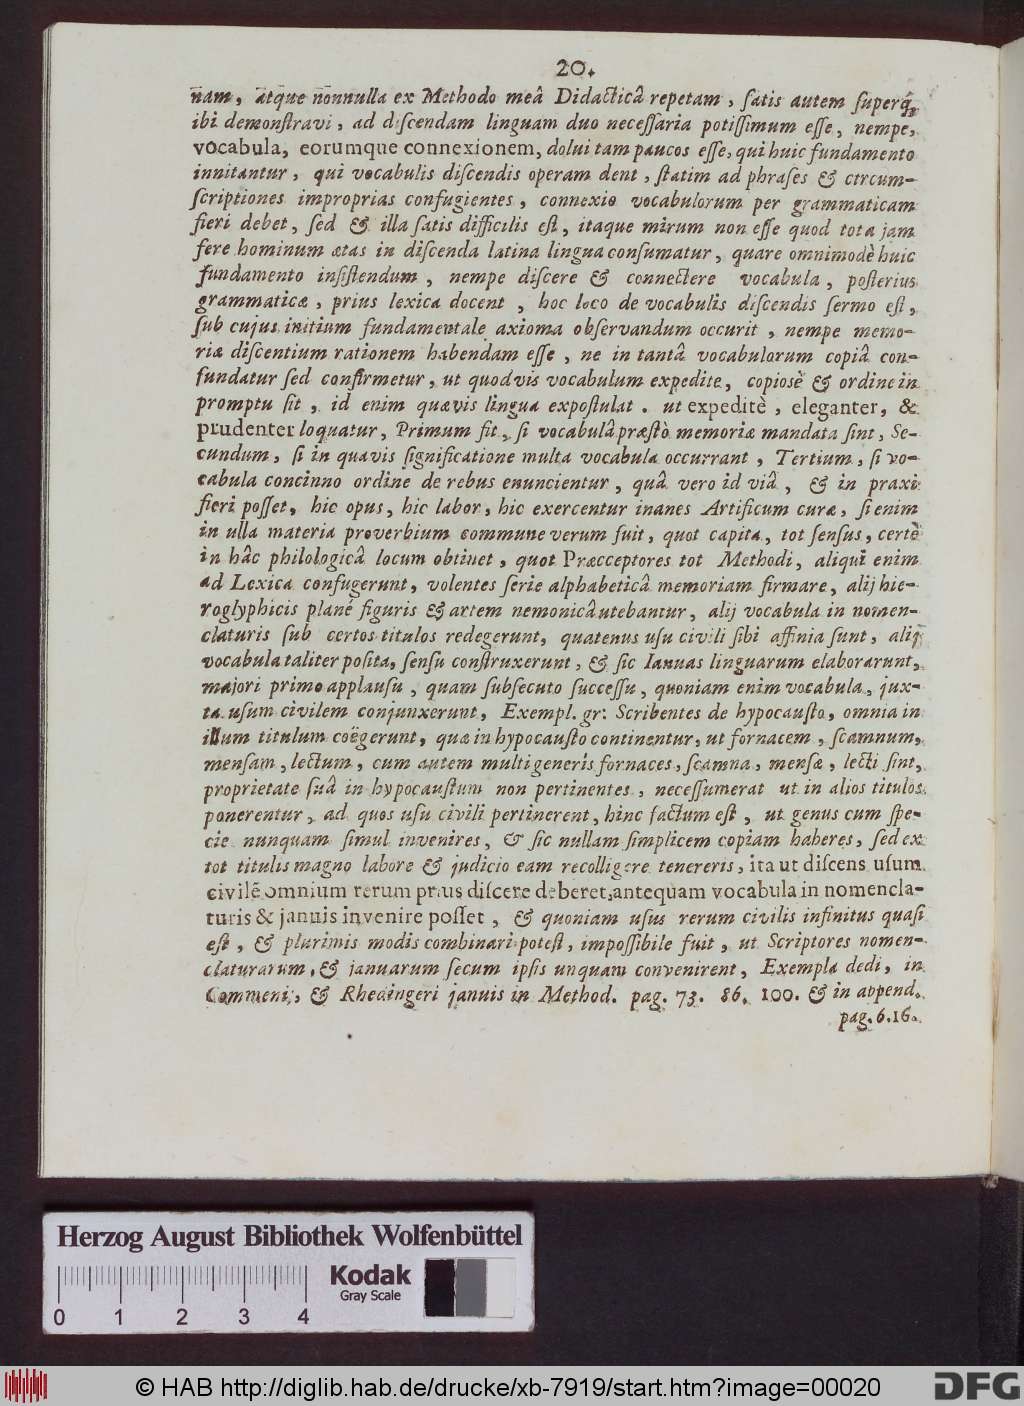 20.
nam, atque nonnulla ex Methodo meâ Didacticâ repetam, ſatis autem ſuperq́;
ibi demonſtravi, ad diſcendam linguam duo neceſſaria potiſſimum eſſe, nempe,
vocabula, eorumque connexionem, dolui tam paucos eſſe, qui huic fundamento
innitantur, qui vocabulis diſcendis operam dent, ſtatim ad phraſes & circum-
ſcriptiones improprias confugientes, connexio vocabulorum per grammaticam
fieri debet, ſed & illa ſatis difficilis eſt, itaque mirum non eſſe quod tota jam
fere hominum ætas in diſcenda latina lingua conſumatur, quare omnimodè huic
fundamento inſiſtendum, nempe diſcere & connectere vocabula, poſterius
grammaticæ, prius lexica docent, hoc loco de vocabulis diſcendis ſermo eſt,
ſub cujus initium fundamentale axioma obſervandum occurit, nempe memo-
riæ diſcentium rationem habendam eſſe, ne in tantâ vocabulorum copiâ con-
fundatur ſed confirmetur, ut quodvis vocabulum expedite, copiosè & ordine in
promptu ſit, id enim quævis lingua expoſtulat. ut expeditè, eleganter, &
prudenter loquatur, Primum fit, ſi vocabula præſtò memoriæ mandata ſint, Se-
cundum, ſi in quavis ſignificatione multa vocabula occurrant, Tertium, ſi vo-
cabula concinno ordine de rebus enuncientur, quâ vero id viâ, & in praxi
fieri poſſet, hic opus, hic labor, hic exercentur inanes Artificum curæ, ſi enim
in ulla materia proverbium commune verum fuit, quot capita, tot ſenſus, certè
in hâc philologicâ locum obtinet, quot Præcceptores tot Methodi, aliqui enim
ad Lexica confugerunt, volentes ſerie alphabeticâ memoriam firmare, alij hie-
roglyphicis planè figuris & artem nemonicâ utebantur, alij vocabula in nomen-
claturis ſub certos titulos redegerunt, quatenus uſu civili ſibi affinia ſunt, alij
vocabula taliter poſita, ſenſu conſtruxerunt, & ſic Ianuas linguarum elaborarunt,
majori primo applauſu, quam ſubſecuto ſucceſſu, quoniam enim vocabula, jux-
ta uſum civilem conjunxerunt, Exempl. gr: Scribentes de hypocauſto, omnia in
illum titulum coëgerunt, quæ in hypocauſto continentur, ut fornacem, ſcamnum,
menſam, lectum, cum autem multi generis fornaces, ſcamna, menſæ, lecti ſint,
proprietate ſuâ in hypocauſtum non pertinentes, neceſſumerat ut in alios titulos
ponerentur, ad quos uſu civili pertinerent, hinc factum eſt, ut genus cum ſpe-
cie nunquam ſimul invenires, & ſic nullam ſimplicem copiam haberes, ſed ex
tot titulis magno labore & judicio eam recolligere tenereris, ita ut diſcens uſum
civilẽ omnium rerum prius diſcere deberet, antequam vocabula in nomencla-
turis & januis invenire poſſet, & quoniam uſus rerum civilis infinitus quaſi
eſt, & plurimis modis combinari poteſt, impoſſibile fuit, ut Scriptores nomen-
claturarum, & januarum ſecum ipſis unquam convenirent, Exempla dedi, in
Commenij, & Rhedingeri januis in Method. pag. 73. 86. 100. & in append.
pag. 6. 16.
Herzog August Bibliothek Wolfenbüttel
Kodak
Gray Scale
0 1 2 3 4
© HAB http://diglib.hab.de/drucke/xb-7919/start.htm?image=00020
DFG